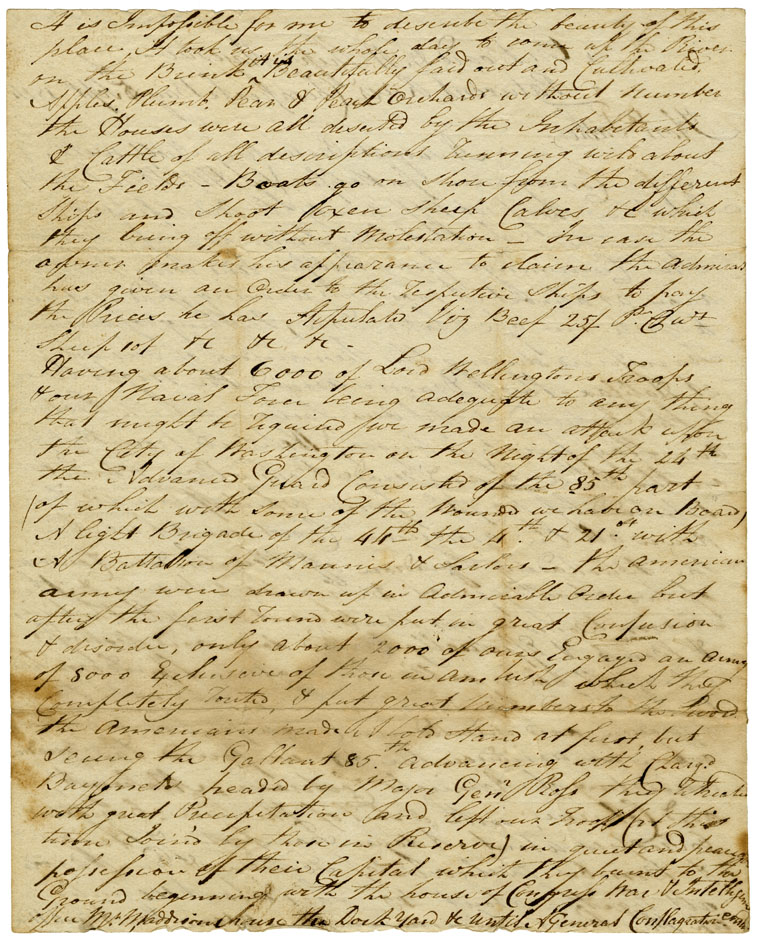 It is Impossible for me to describe the beauty of this
place, it took us the whole day to come up the River
on the Brink it is Beautifully laid out and Cultivated,
Apples, Plumb, Pear & Peach Orchards without number
the Houses were all deserted by the Inhabitants
& Cattle of all descriptions running wild about
the Fields – Boats go on shore from the different
Ships and Shoot Oxen Sheep Calves &c which
they bring off without Molestation – In case the
owner makes his appearance to claim the Admiral
has given an Order to the respective Ships to pay
the Prices he has Stipulated Viz Beef 25/ Pr. Cwt
Sheep 10/ &c &c &c –
Having about 6000 of Lord Wellingtons Troops
& our Naval Force being adequate to any thing
that might be required we made an attack upon
the City of Washington on the Night of the 24th
the Advanced Guard Consisted of the 85th part
(of which with some of the Wound we have on Board)
A light Brigade of the 44th the 4th & 21st with
A Battallion of Marines & Sailors – the American
army were drawn up in Admirable Order but
after the first round were put in great Confusion
& disorder, only about 2000 of ours Engaged an army
of 8000 Exclusive of those in ambush which they
Completely routed, & put great numbers to the Sword
the Amerians made a bold Stand at first, but
seeing the Gallant 85.th advancing with Charg'd
Bayonets headed by Major Genl Ross they retreated
with great Precipitation and left our Troops (at this
time Join'd by those in Reserve) in quiet and
possession of their Capital which they burnt to the
Ground beginning with the house of Congress War &
office Mr Maddisons house the Dock Yard &c Until A General Conflagration